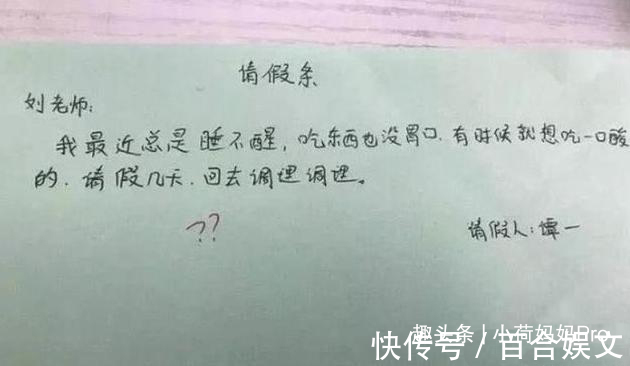 请假条
刘老师:
我最近总是睡不醒,吃东西也没胃口.有时候就想吃一口酸
的.请假几天.回去调理调理。
??
请假人:谭一
趣头条 / 小荷妈妈Pro
快传号 / 百合娱文